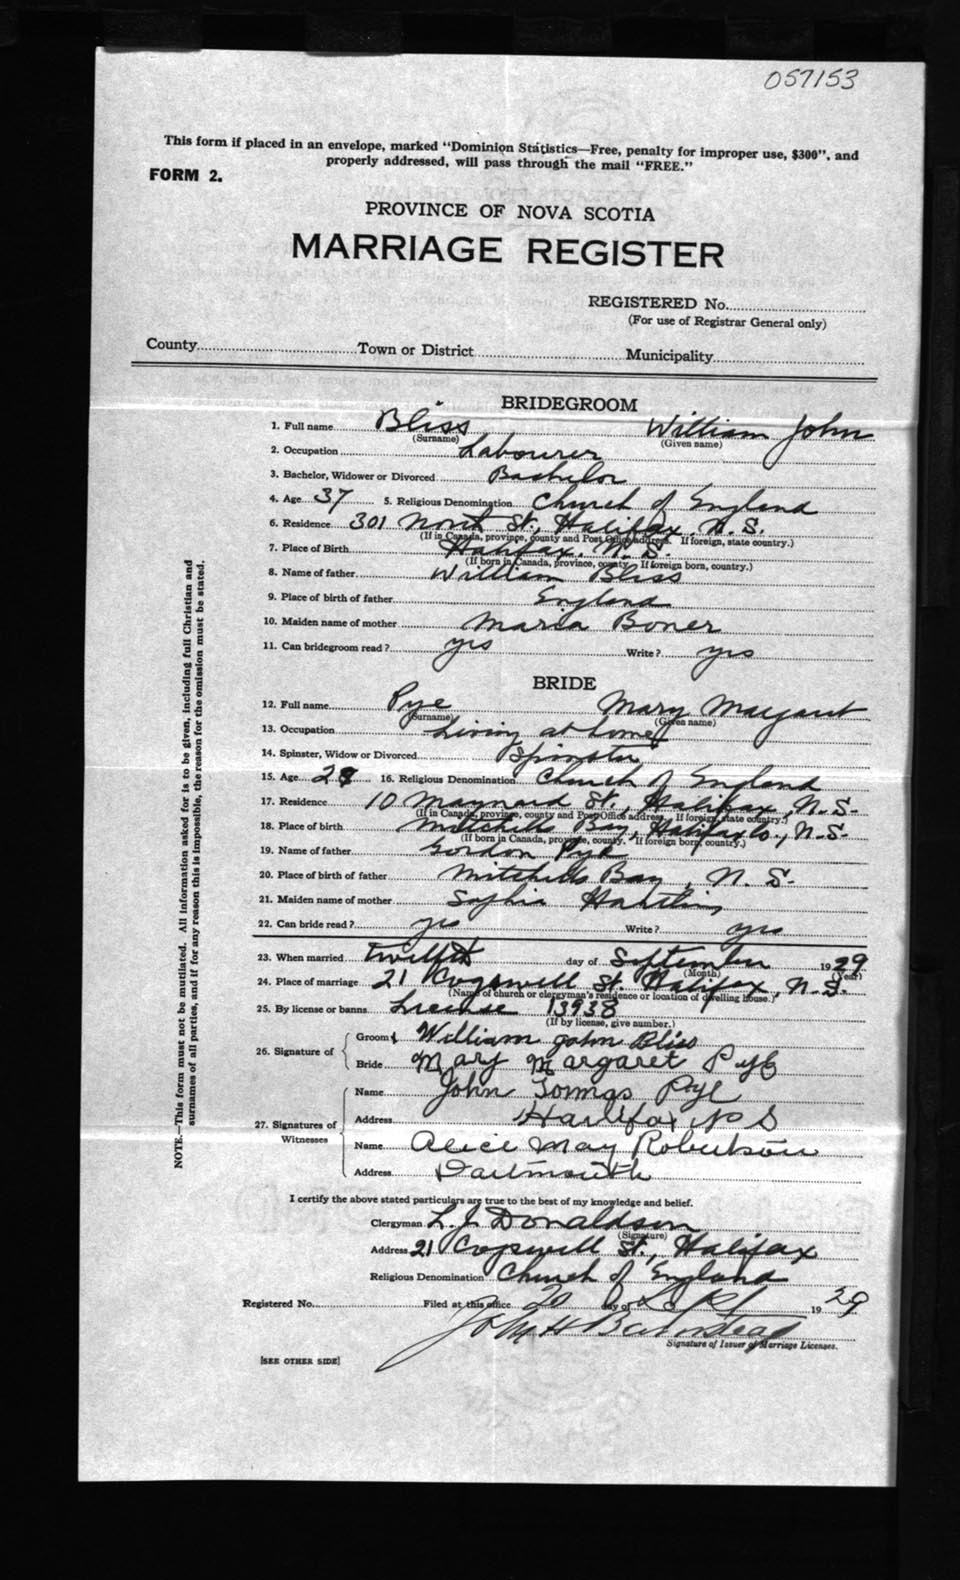 057153
This form if placed in an envelope, marked "Dominion Statistics—Free, penalty for improper use, $300", and
properly addressed, will pass through the mail "FREE."
FORM 2.
PROVINCE OF NOVA SCOTIA
MARRIAGE REGISTER
REGISTERED No.
(For use of Registrar General only)
County Town or District Municipality
BRIDEGROOM
1. Full name Bliss William John
(Surname) (Given name)
2. Occupation Labourer
3. Bachelor, Widower or Divorced Bachelor
4. Age 37 5. Religious Denomination Church of England
6. Residence 301 North St., Halifax, N.S.
(If in Canada, province, county and Post Office address. If foreign, state country.)
7. Place of Birth Halifax, N.S.
(If born in Canada, province, county. If foreign born, country.)
8. Name of father William Bliss
9. Place of birth of father England
10. Maiden name of mother Maria Boner
11. Can bridegroom read? yes Write? yes
BRIDE
12. Full name Pye Mary Margaret
(Surname) (Given name)
13. Occupation Living at home
14. Spinster, Widow or Divorced Spinster
15. Age 28 16. Religious Denomination Church of England
17. Residence 10 Maynard St., Halifax, N.S.
(If in Canada, province, county and Post Office address. If foreign, state country.)
18. Place of birth Mitchells Bay, Halifax Co., N.S.
(If born in Canada, province, county. If foreign born, country.)
19. Name of father Gordon Pye
20. Place of birth of father Mitchells Bay, N.S.
21. Maiden name of mother Sophia
22. Can bride read? yes Write? yes
23. When married twelfth day of September 1929
(Month) (Year)
24. Place of marriage 21 Cogswell St. Halifax, N.S.
(Name of church or clergyman's residence or location of dwelling house.)
25. By license or banns License 13938
(If by license, give number.)
26. Signature of Groom William john Bliss
Bride Mary Margaret Pye
27. Signatures of Witnesses Name John Tommas Pye
Address Hailifax N S
Name Alice May Robertson
Address Dartmouth
I certify the above stated particulars are true to the best of my knowledge and belief.
Clergyman L. J. Donaldson
(Signature)
Address 21 Cogswell St., Halifax
Religious Denomination Church of England
Registered No. Filed at this office 20 day of Sept 1929
John H
Signature of Issuer of Marriage Licenses.
[SEE OTHER SIDE]
NOTE.—This form must not be mutilated. All information asked for is to be given, including full Christian and
surnames of all parties, and if for any reason this is impossible, the reason for the omission must be stated.